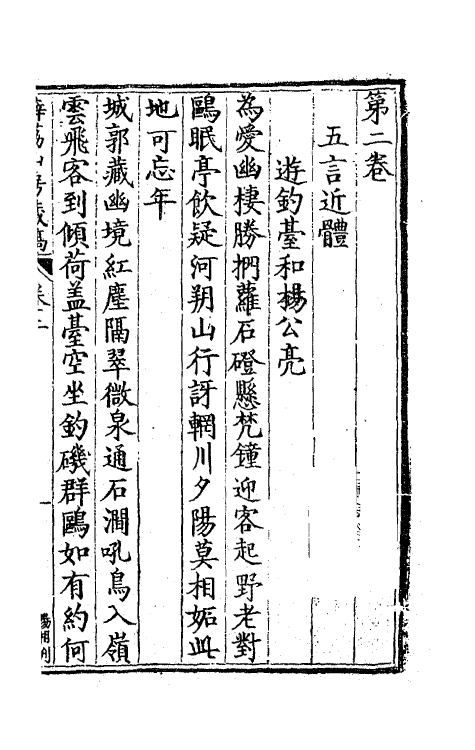 第二卷
五言近體
遊釣臺和楊公亮
為愛幽棲勝捫蘿石磴懸梵鐘迎客起野老對
鷗眠亭飲疑河朔山行訝輞川夕陽莫相妬此
地可忘年
城郭藏幽境紅塵隔翠微泉通石澗吼鳥入嶺
雲飛客到傾荷盖臺空坐釣磯群鷗如有約何
薜荔山房藏稿
卷之二
一